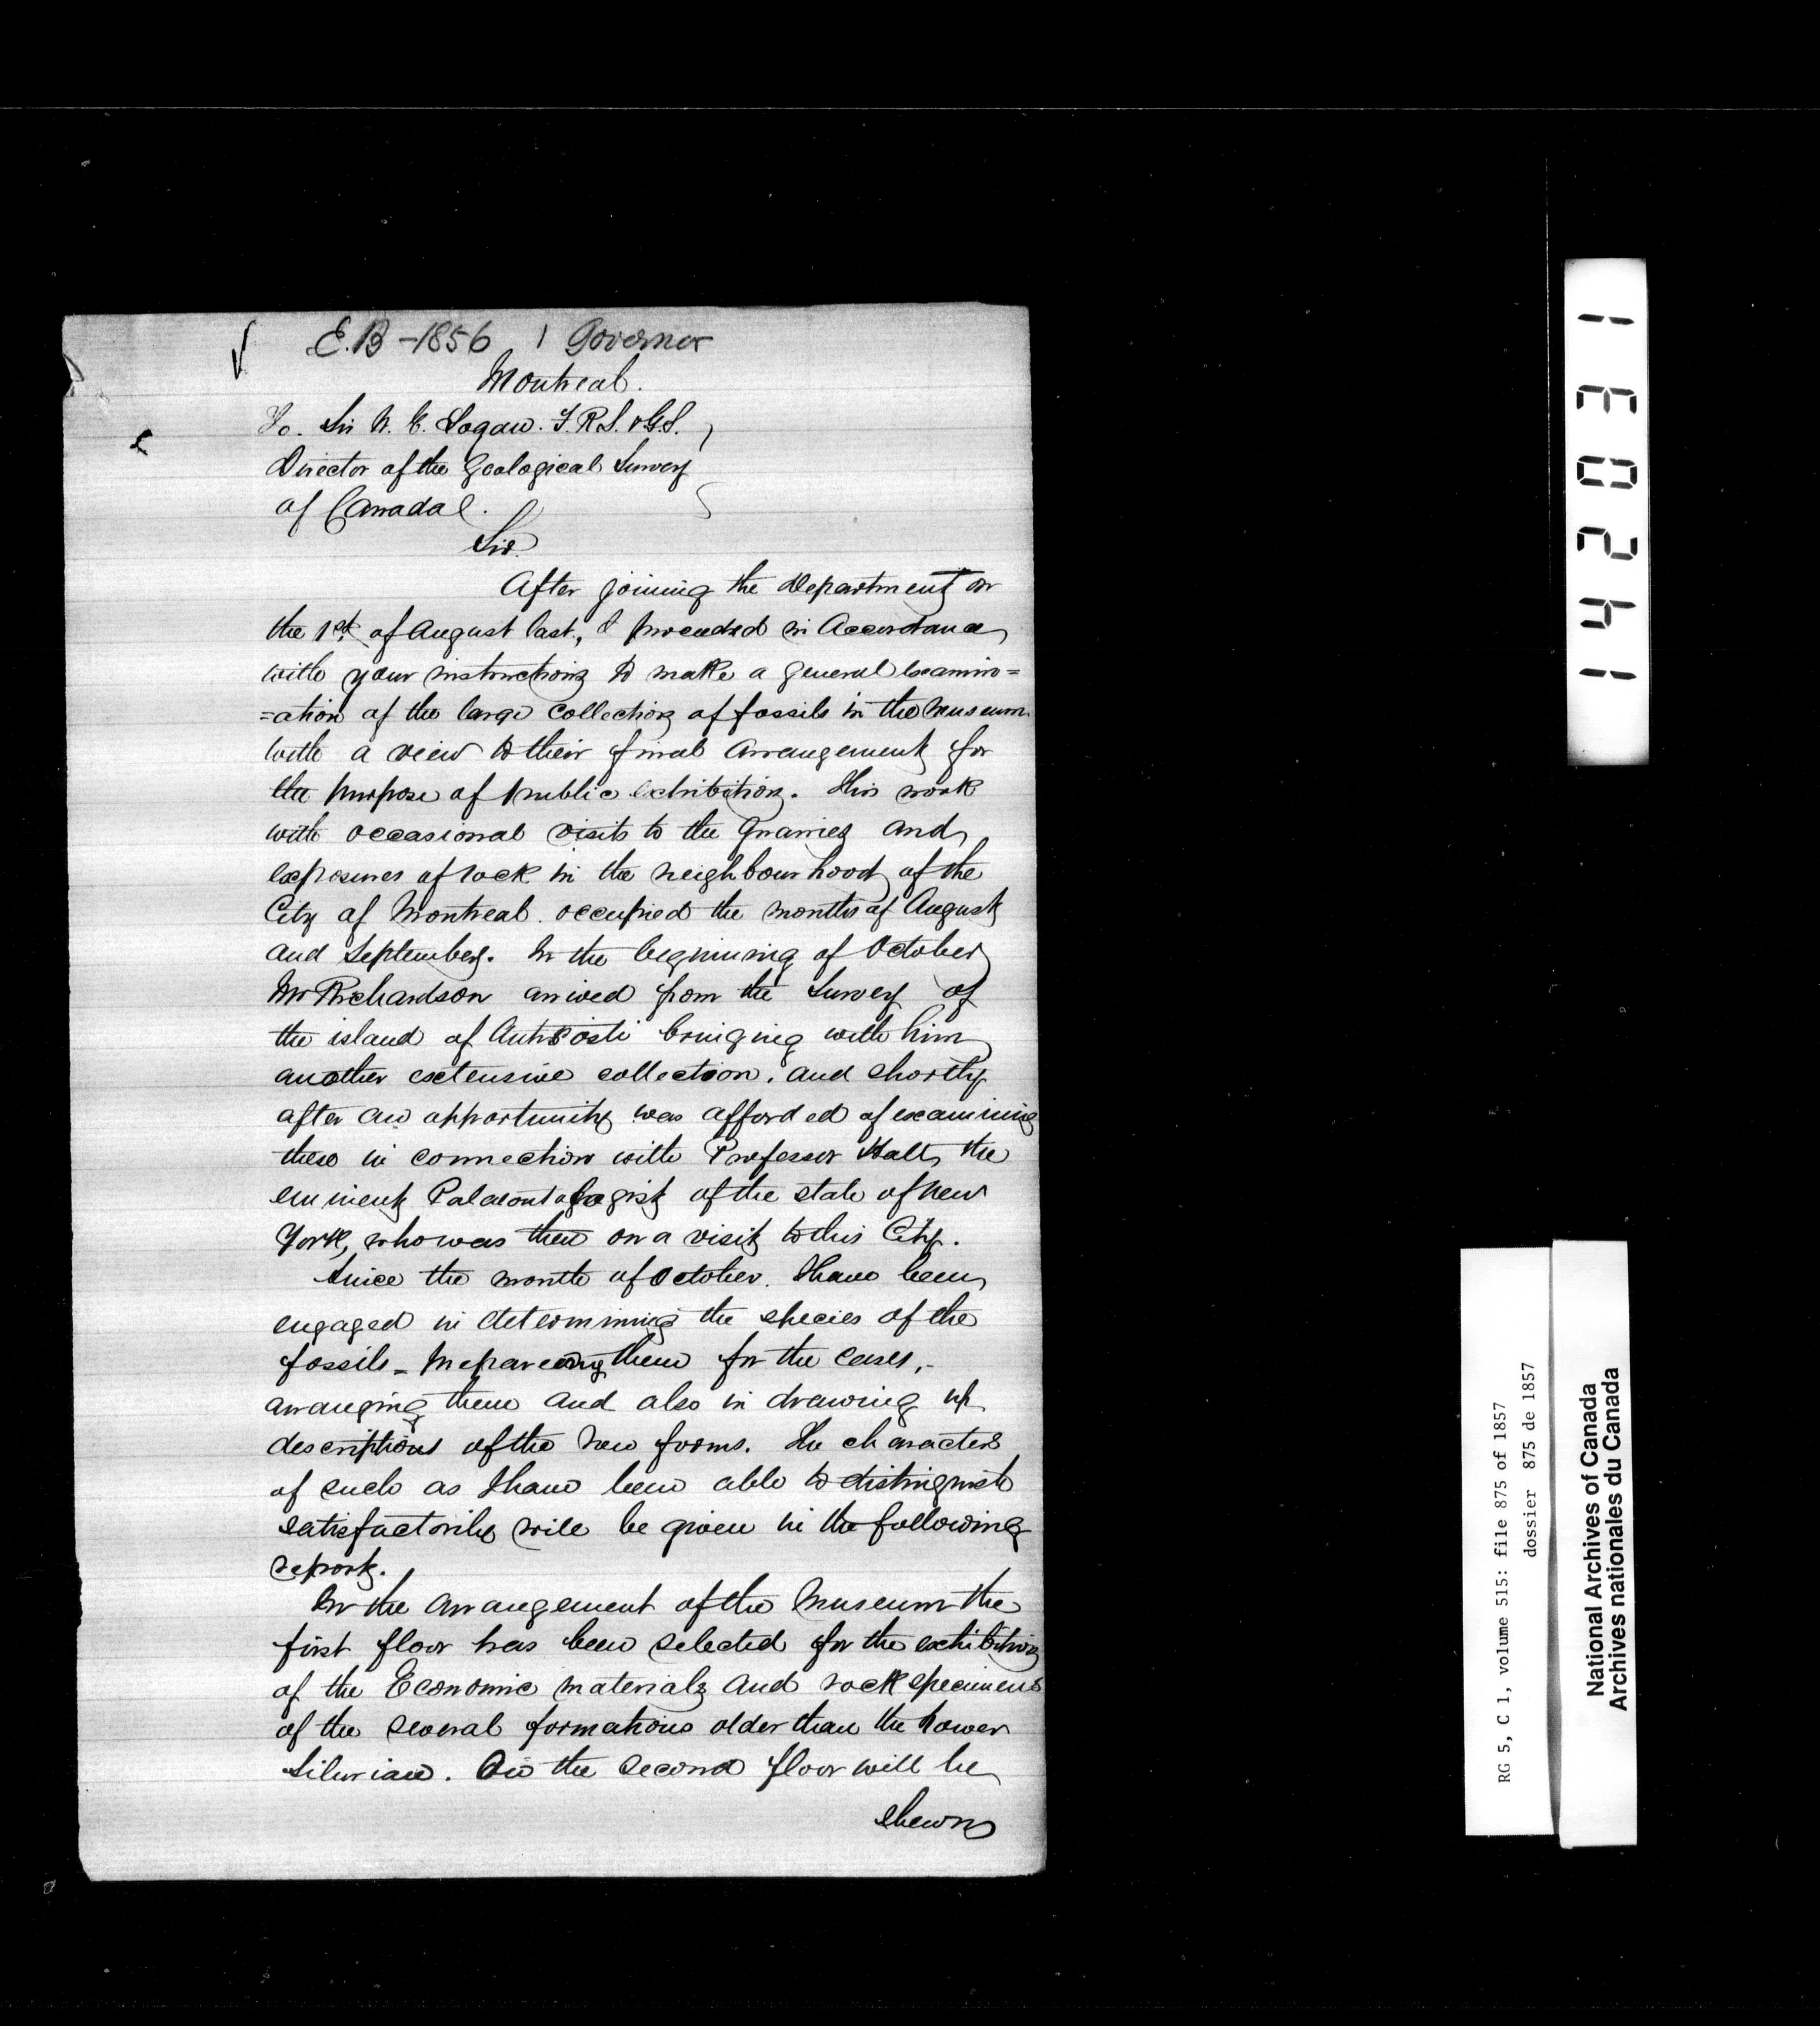 E.B-1856 1 Governor
Montreal.
To. Sir W. E. Logan. F.R.S. & G.S.
Director of the Geological Survey
of Canada.
Sir.
After joining the department on
the 1st of August last, I proceeded in Accordance
with your instructions to make a general examin=
=ation of the large collection of fossils in the Museum
with a view to their final arrangement for
the purpose of public exhibition. This work
with occasional visits to the Quarries and
exposures of rock in the neighbourhood of the
City of Montreal. occupied the months of August
and September. In the beginning of October
Mr Richardson arrived from the Survey of
the island of Anticosti bringing with him
another extensive collection. and shortly
after an opportunity was afforded of examining
these in connection with Professor Hall, the
eminent Palaeontologist of the state of New
York, who was then on a visit to this City.
Since the month of October. I have been
engaged in determining the species of the
fossils – prepareing them for the cases,-
arranging them and also in drawing up
descriptions of the new forms. The characters
of such as I have been able to distinguish
satisfactorily will be given in the following
report.
In the arrangement of the Museum the
first floor has been selected for the exhibition
of the Economic materials and rock specimens
of the several formations older than the Lower
Silurian. On the second floor will be
shewn
142031
RG 5, C 1, volume 515: file 875 of 1857
dossier 875 de 1857
National Archives of Canada
Archives nationales du Canada